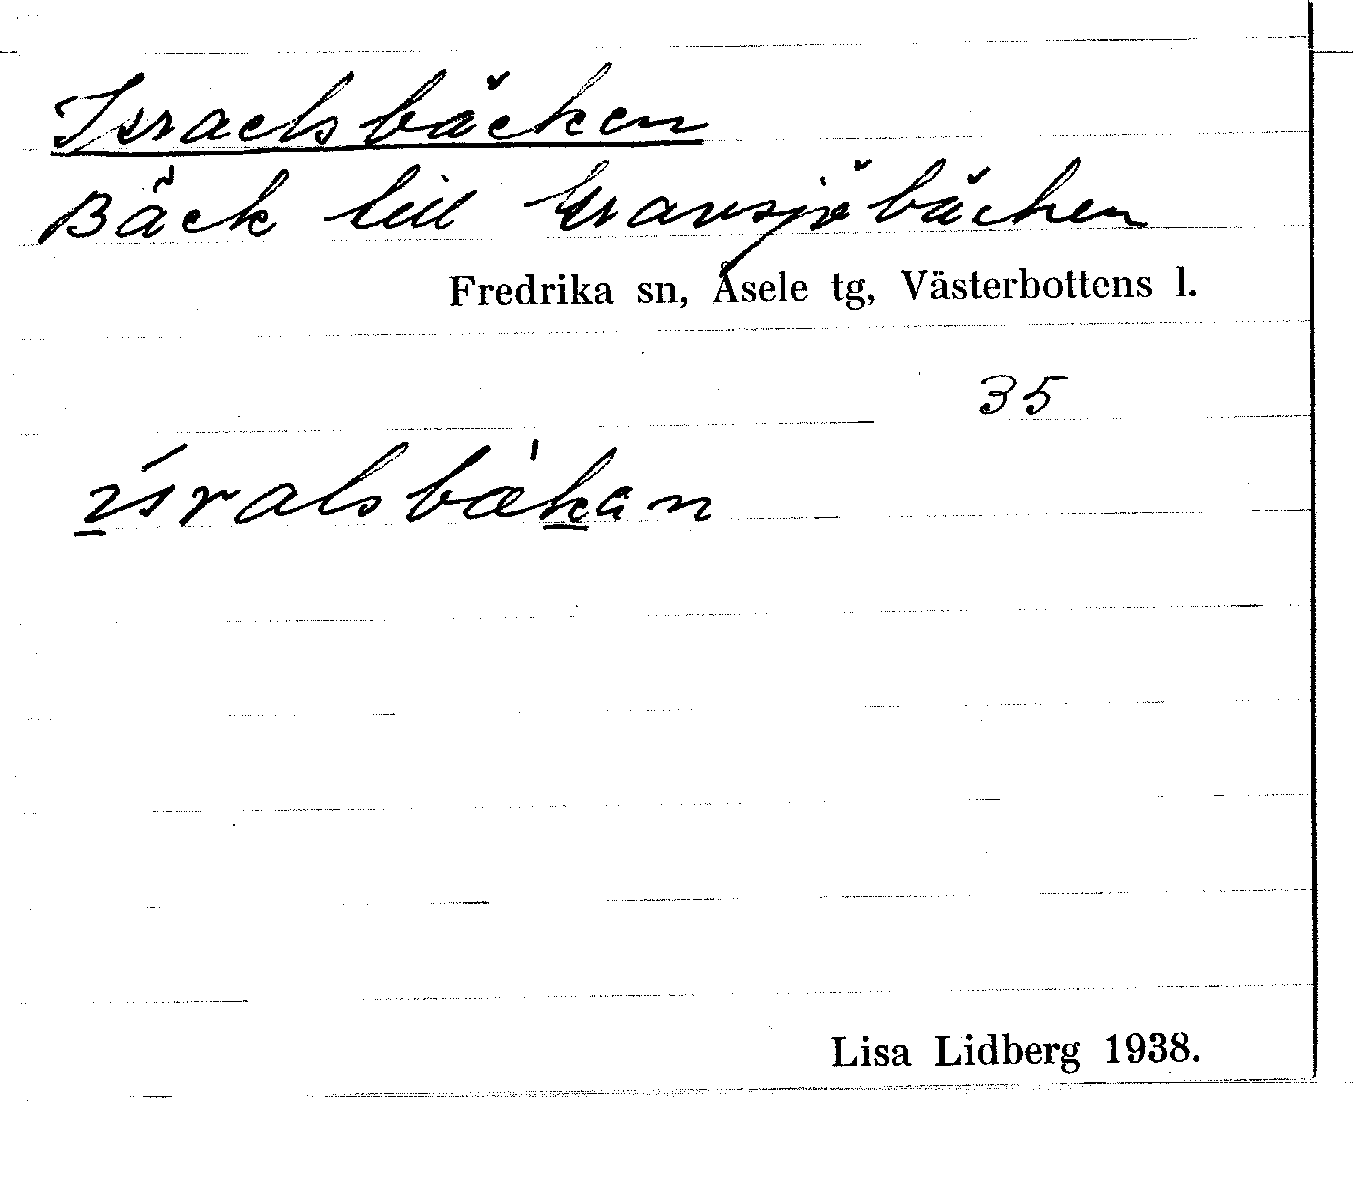 Israelsbäcken
Bäck till Gransjöbäcken
Fredrika sn, Åsele tg, Västerbottens l.
35
ísralsbækan
Lisa Lidberg 1938.